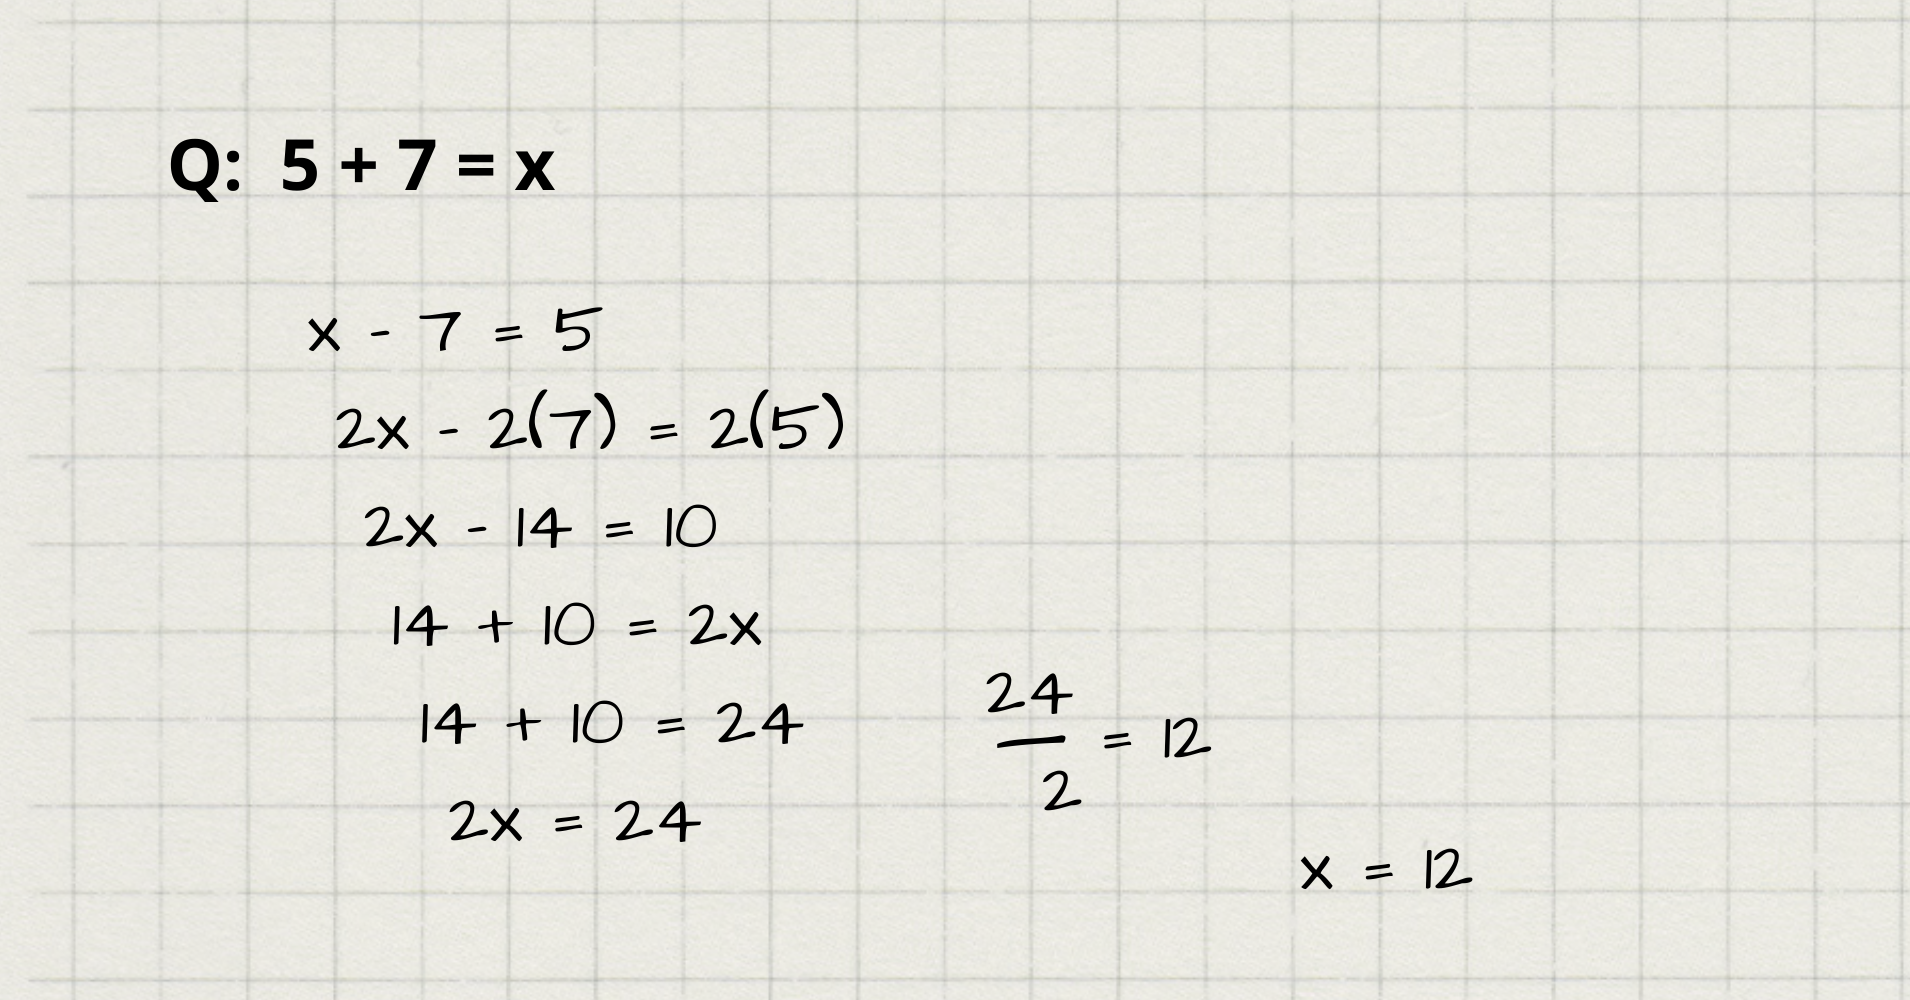 Q: 5 + 7 = x
x - 7 = 5
2x - 2(7) = 2(5)
2x - 14 = 10
14 + 10 = 2x
14 + 10 = 24
2x = 24
24
2
= 12
x = 12